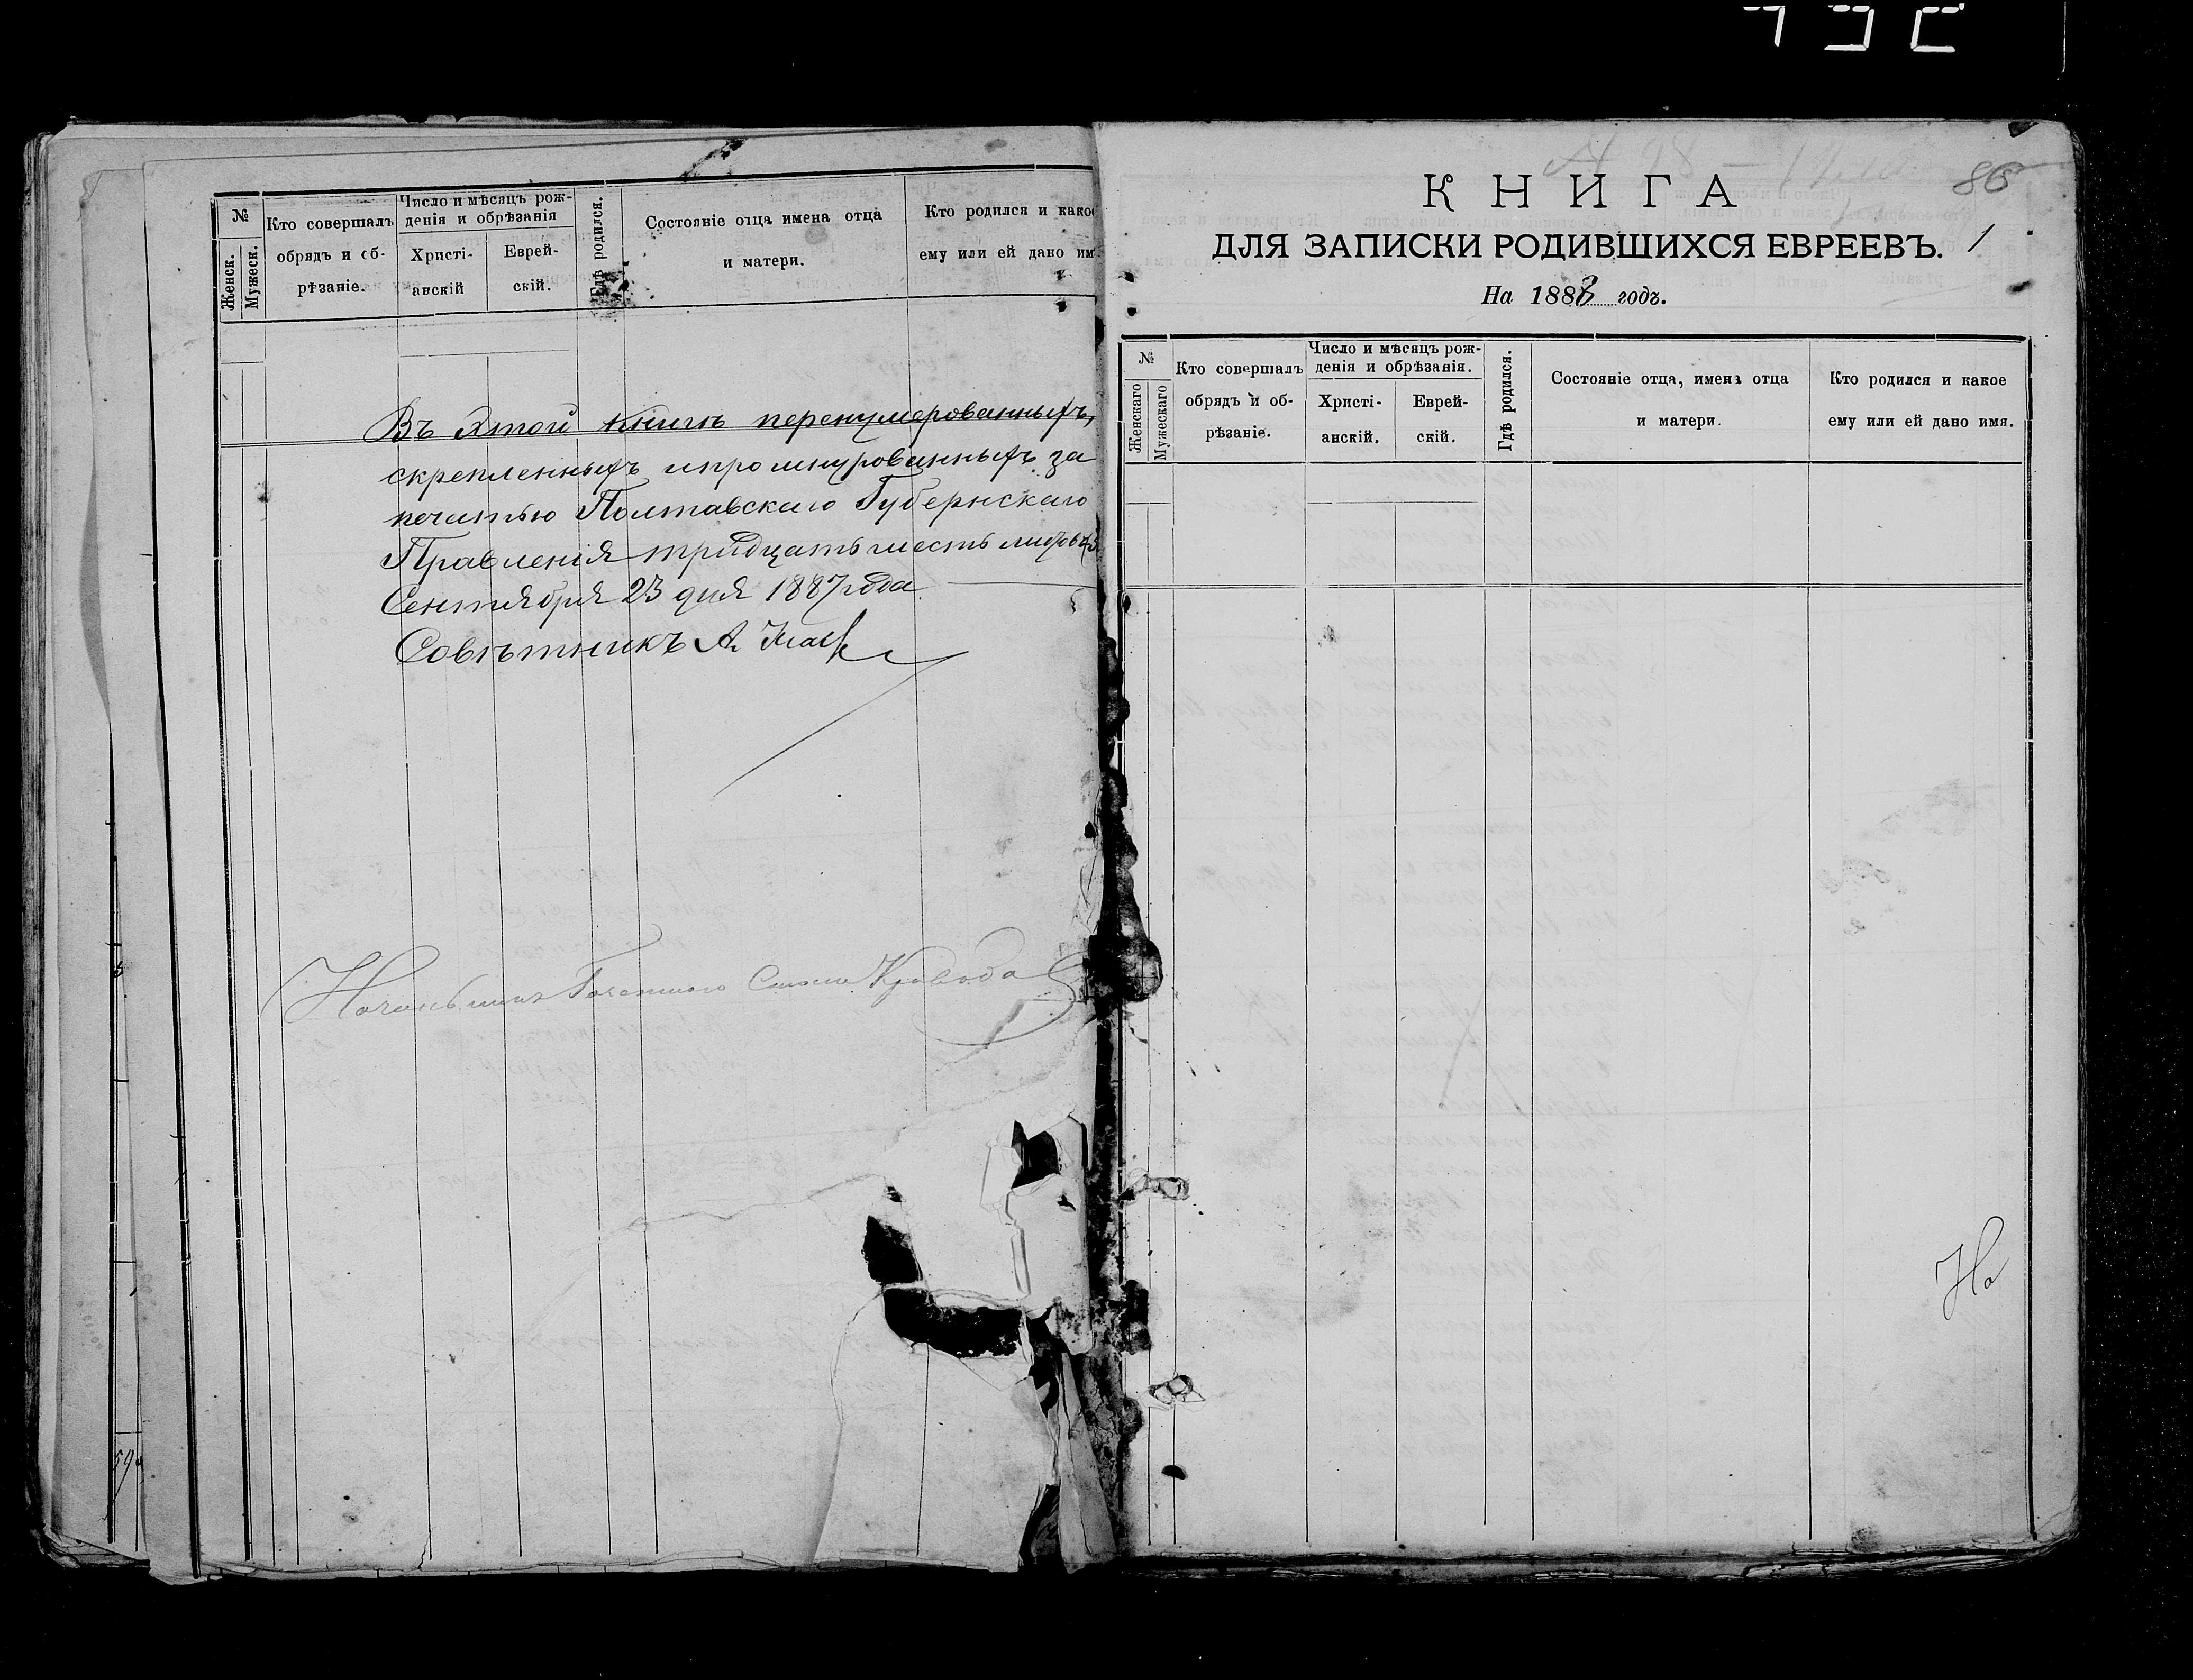 №
Женск.
Мужеск.
Кто совершалъ
обрядъ и об-
рѣзаніе.
Число и мѣсяцъ рож-
денія и обрѣзанія
Христі-
анскій
Еврей-
скій.
Гдѣ родился.
Состояніе отца имена отца
и матери.
Кто родился и како
ему или ей дано им
Въ этой книгѣ перенумерованныхъ,
скрепленныхъ и прошнурованныхъ за
печатью Полтавскаго Губернскаго
Правленія тридцать шесть листовъ
Сентября 23 дня 1887 года
Совѣтникъ А.
86
КНИГА
ДЛЯ ЗАПИСКИ РОДИВШИХСЯ ЕВРЕЕВЪ. 1
На 1888 годъ.
№
Женскаго
Мужескаго
Кто совершалъ
обрядъ и об-
рѣзаніе.
Число и мѣсяцъ рож-
денія и обрѣзанія.
Христі-
анскій.
Еврей-
скій.
Гдѣ родился.
Состояніе отца, имена отца
и матери.
Кто родился и какое
ему или ей дано имя.
На